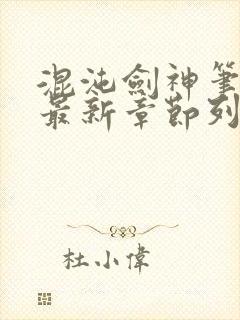 混沌劍神筆
最新章節列
杜小偉